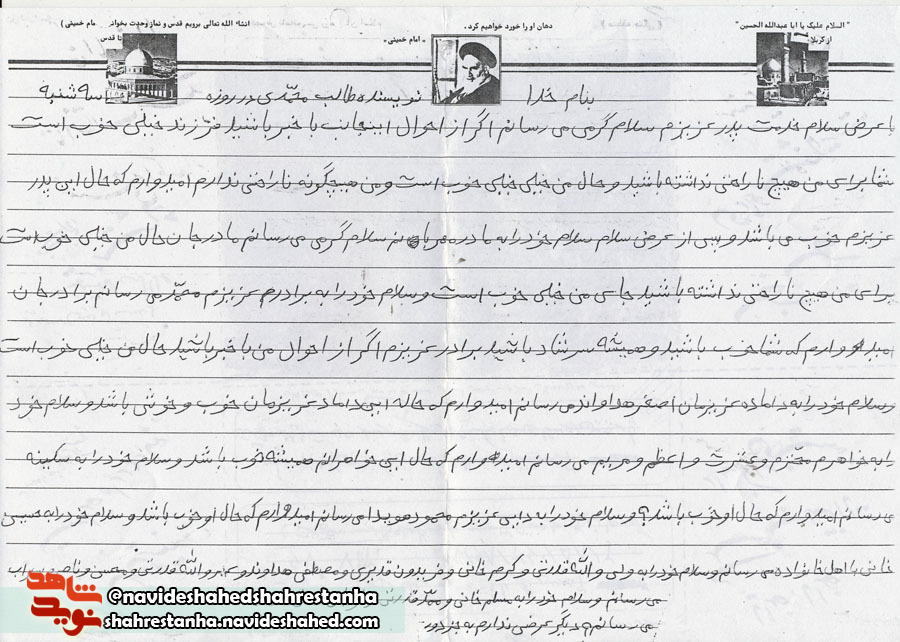 "السلام علیک یا ابا عبدالله الحسین" دهان او را خورد خواهیم کرد. انشاء الله تعالی برویم قدس و نماز وحدت بخوانیم امام خمینی)
از کربلا - امام خمینی - تا قدس
بنام خدا نویسنده طالب محمّدی در روزه سه شنبه
با عرض سلام خدمت پدر عزیزم سلام گرمی می رسانم اگر از احوال اینجانب با خبر باشید فرزند خیلی خوب است
شما برای من هیچ ناراحتی نداشته باشید و حال من خیلی خیلی خوب است و من هیچگونه ناراحتی ندارم امیدوارم که حال ابی پدر
عزیزم خوب می باشد و بس از عرض سلام سلام خود را به مادره مهربانم سلام گرمی می رسانم مادر جان حال من خیلی خوب است
برای من هیچ ناراحتی نداشته باشید جای من خیلی خوب است و سلام خود را به برادرم عزیزم محمّد می رسانم برادر جان
امیدوارم که شما خوب باشید و همیشه سرشاد باشید برادر عزیزم اگر از احوال من با خبر باشید حال من خیلی خوب است
و سلام خود را به داماده عزیزمان اصغر هداوند می رسانم امیدوارم که حاله ابی داماد عزیزمان خوب و خوش باشد و سلام خود
را به خواهرم محترم و عشرت و اعظم و مریم می رسانم امیدوارم که حال ابی خواهرانم همیشه خوب باشد و سلام خود را به سکینه
می رسانم امیدوارم که حال او خوب باشد؟ و سلام خود را به دایی عزیزم محمود هویدا می رسانم امیدوارم که حال او خوب باشد و سلام خود را به حسین
خانی با اهل خانواده می رسانم و سلام خود را به ولی والله قدرتی و کرم خانی و فریدون قدیری و مصطفی هداوند و والله قدرتی و محسن و ناصر و سراب
می رسانم و سلام خود را به مسلم خانی و محمّد قدرتی
می رسانم و دیگر عرضی ندارم به جز دوری
شاهد
نوید
@navideshahedshahrestanha
shahrestanha.navideshahed.com